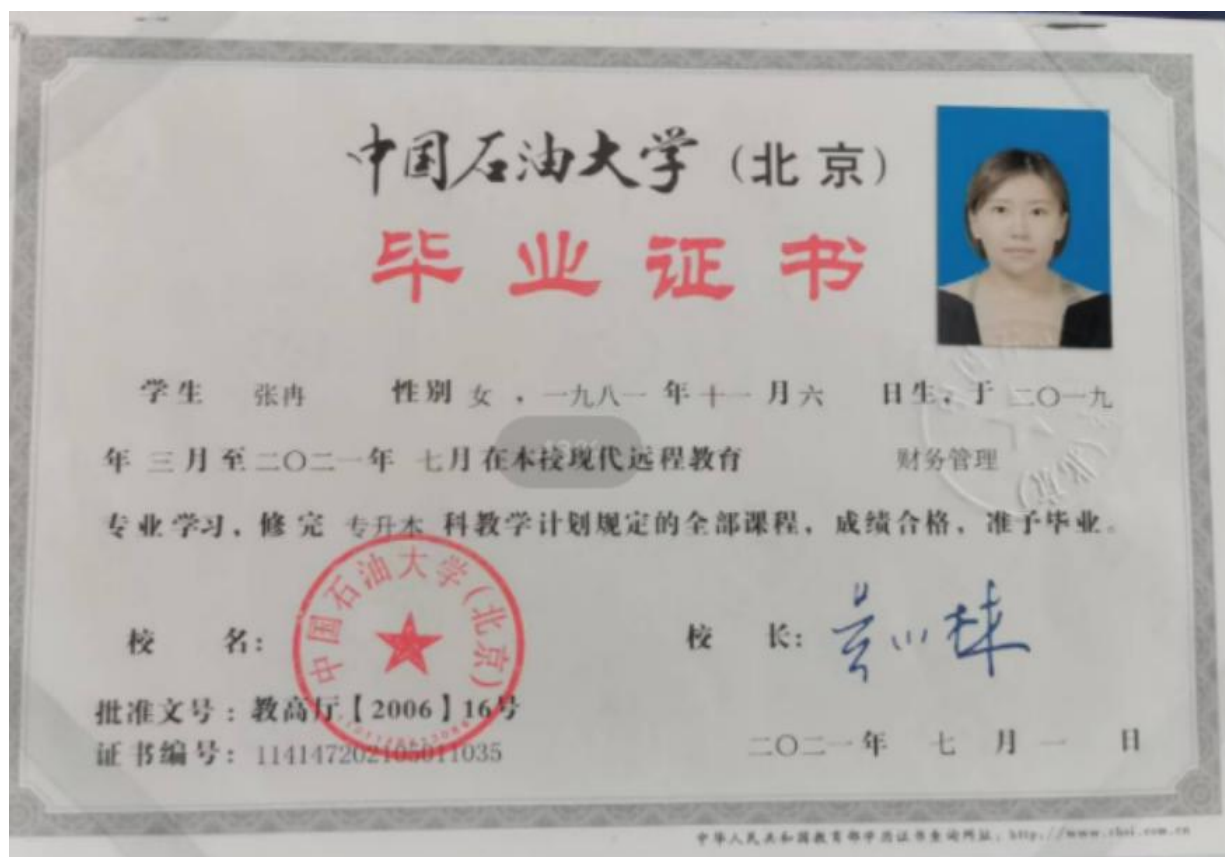 中国石油大学（北京）
毕业证书
学生 张冉 性别 女，一九八一 年 十一 月 六 日生，于 二〇一九
年 三月 至 二〇二一年 七月 在本校现代远程教育 财务管理
专业学习，修完 专升本 科教学计划规定的全部课程，成绩合格，准予毕业。
校 名：
中国石油大学（北京）
校 长：
批准文号：教高厅【2006】16号
证书编号：114147202105011035
二〇二一 年 七 月 一 日
中华人民共和国教育部学历证书查询网址：http://www.chsi.com.cn